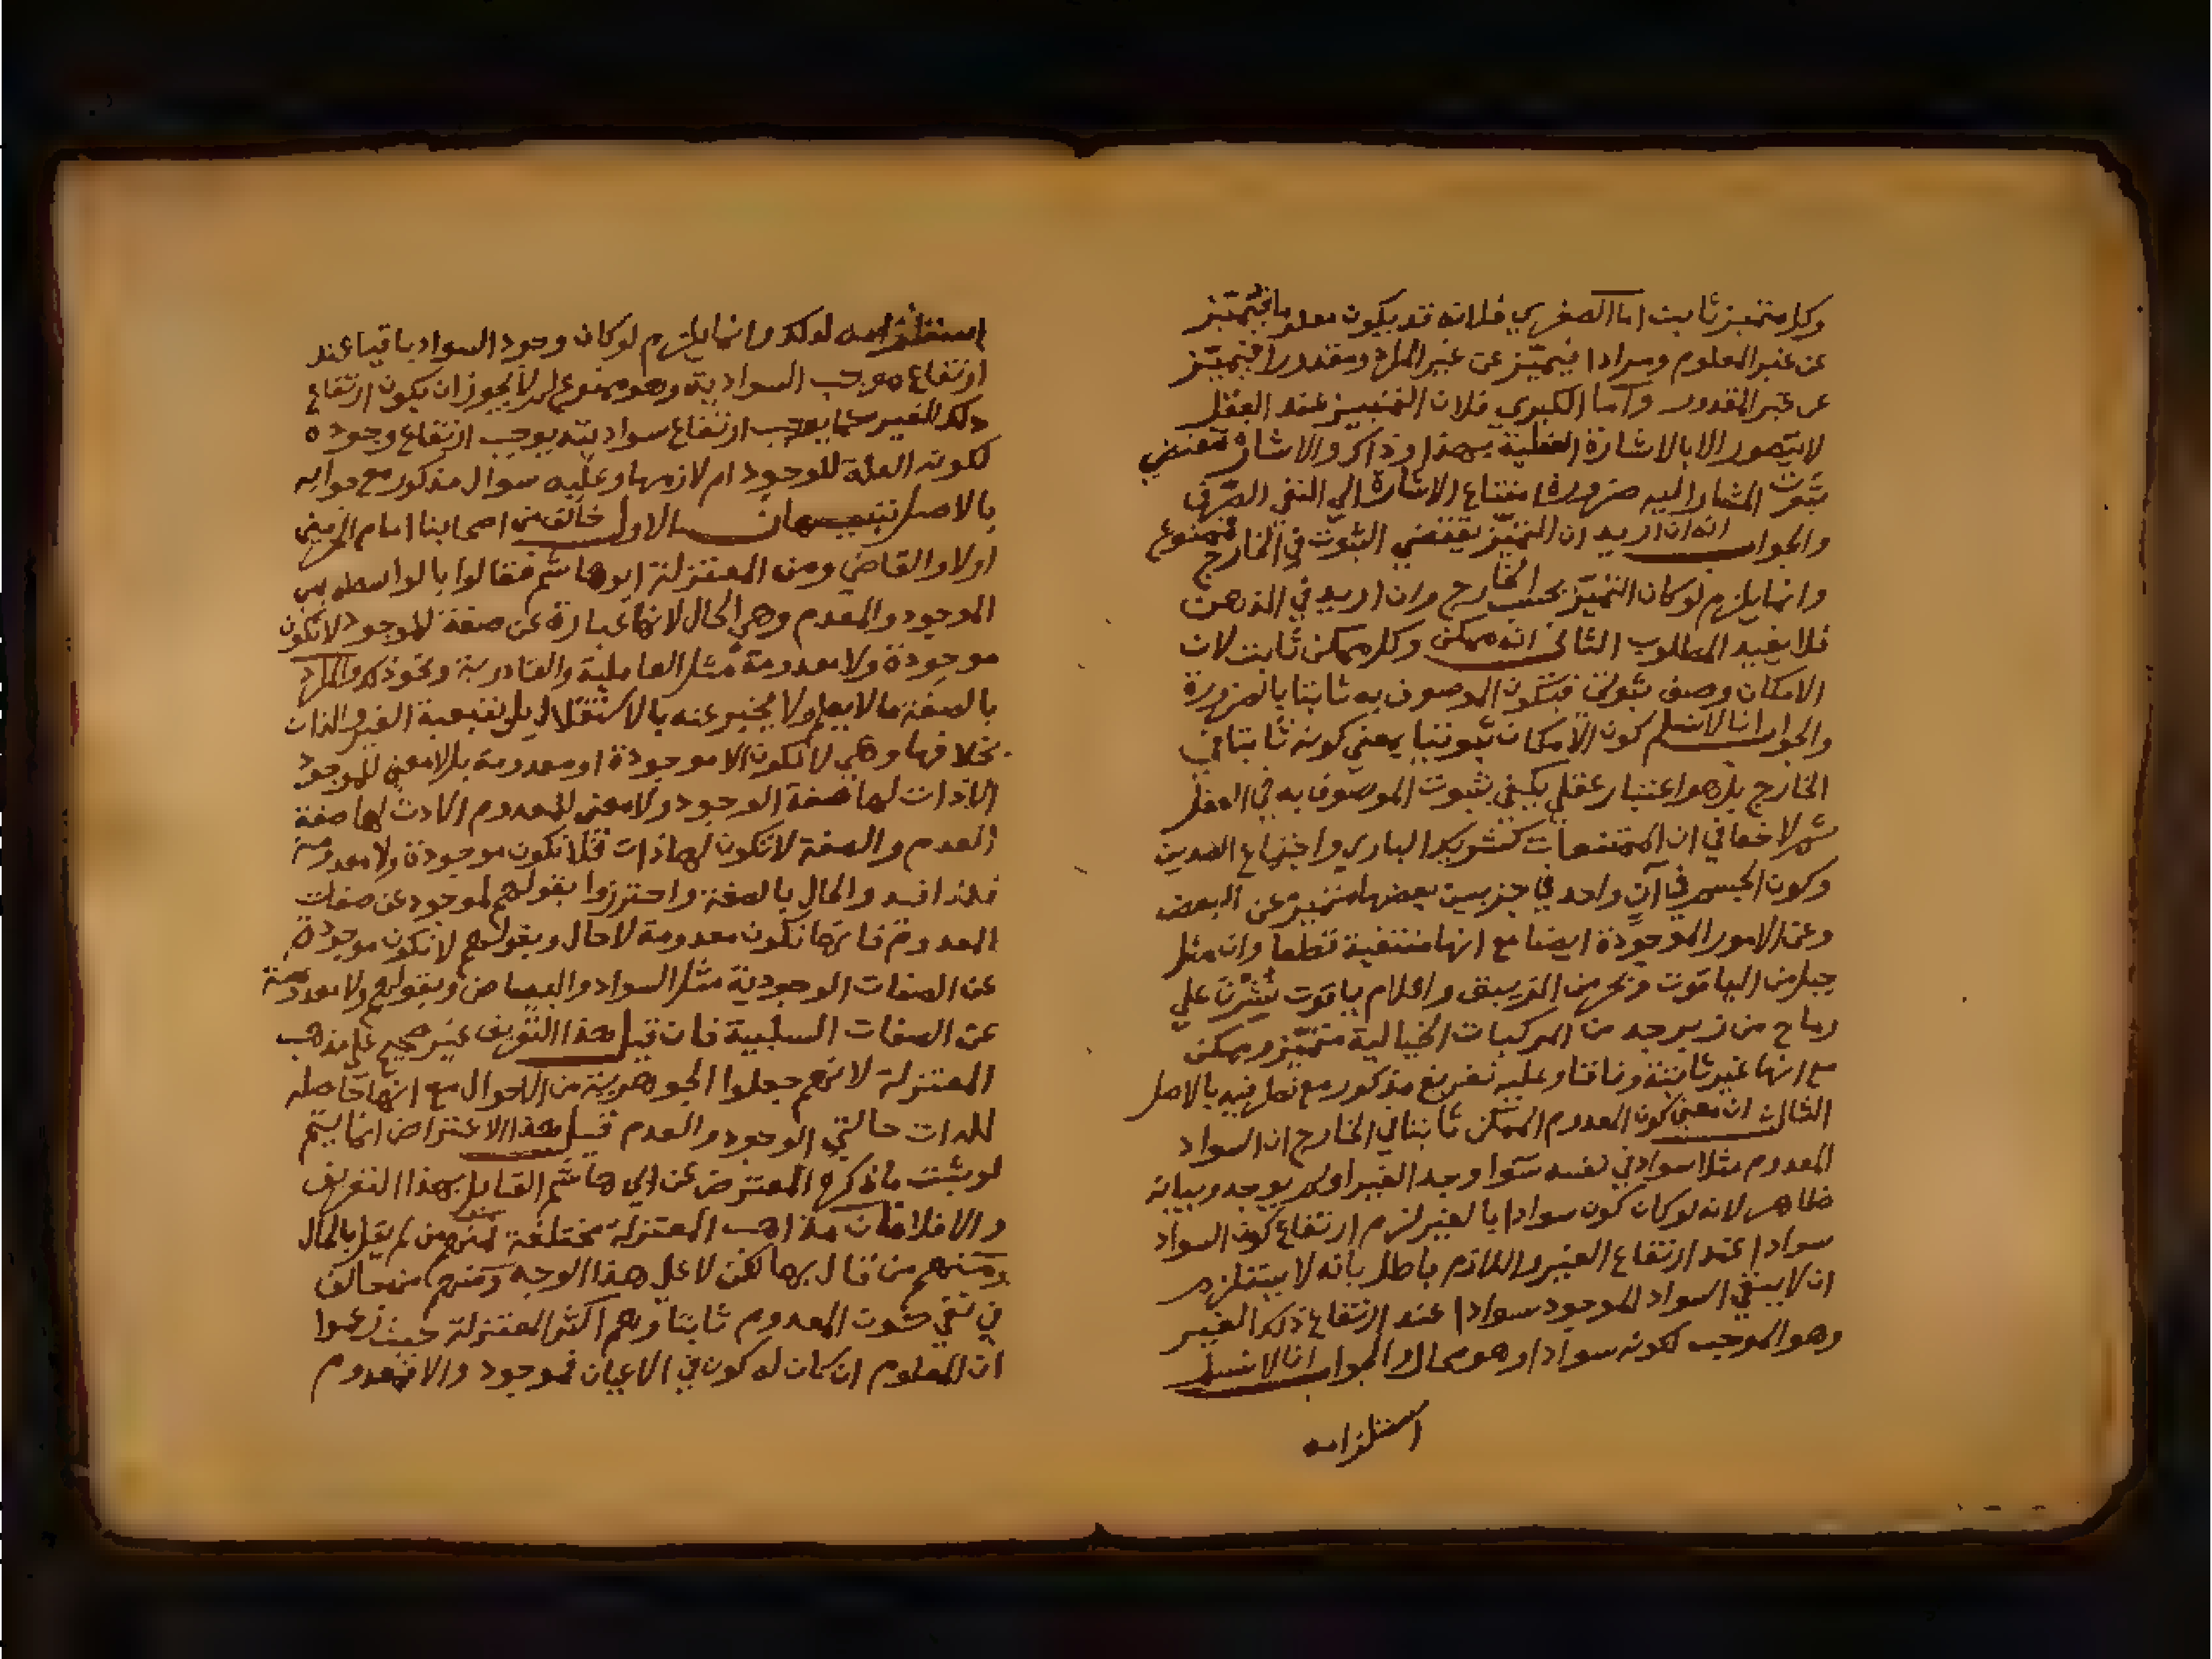 وكل متميز ثابت اما الصغري فلانه قد يكون معلوما فيتميز
عن غير المعلوم ومرادا فيتميز عن غير المراد ومقدورا فيتميز
عن غير المقدور واما الكبري فلان التمييز عند العقل
لا يتصور الا بالاشارة العقلية بهذا وذاك والاشارة تقتضي
ثبوت المشار اليه ضرورة امتناع الاشارة الي النفي الصرف
والجواب انه ان اريد ان التميز يقتضي الثبوت في الخارج فممنوع
وانما يلزم لو كان التميز بحسب الخارج وان اريد في الذهن
فلا يفيد المطلوب الثاني انه ممكن وكل ممكن ثابت لان
الامكان وصف ثبوتي فيكون الموصوف به ثابتا بالضرورة
والجواب انا لا نسلم كون الامكان ثبوتيا بمعني كونه ثابتا في
الخارج بل هو اعتبار عقلي يكفي ثبوت الموصوف به في العقل
ثم لا خفا في ان الممتنعات كشريك الباري واجتماع الضدين
وكون الجسم في آن واحد في حيزين بعضها متميز عن البعض
وعن الامور الموجودة ايضا مع انها منتفية قطعا وان مثل
جبل من الياقوت وبحر من الزيبق واعلام ياقوت نشرن علي
رماح من زبرجد من المركبات الخيالية متميز وممكن
مع انها غير ثابتة وفاقا وعليه تفريع مذكور مع نظر فيه بالاصل
الثالث ان معني كون المعدوم الممكن ثابتا في الخارج ان السواد
المعدوم مثلا سواد في نفسه سوا وجد الغير اولم يوجد وبيانه
ظاهر لانه لو كان كون سوادا بالغير لزم ارتفاع كون السواد
سوادا عند ارتفاع الغير واللازم باطل بانه لا يستلزم
ان لا يبقي السواد الموجود سوادا عند ارتفاع ذلك الغير
وهو الموجب لكونه سوادا وهو محال والجواب انا لا نسلم
استلزامه
استلزامه لذلك وانما يلزم لو كان وجود السواد باقيا عند
ارتفاع موجب السوادية وهو ممنوع لم لا يجوز ان يكون ارتفاع
ذلك الغير كما يوجب ارتفاع سواديته يوجب ارتفاع وجوده
لكونه العلة للوجود ام لازمها وعليه سوال مذكور مع جوابه
بالاصل تنبيهان الاول خالف من اصحابنا امام الحرمين
اولا والقاضي ومن المعتزلة ابو هاشم فقالوا بالواسطه بين
الموجود والمعدم وهي الحال لانها عبارة عن صفة للموجود لا تكون
موجودة ولا معدومة مثل العالمية والقادرية ونحو ذلك والمراد
بالصفة مالا يعلم ولا يخبر عنه بالاستقلال بل بتبعية الغير والذات
بخلافها وهي لا تكون الا موجودة او معدومة بل لا معني للموجود
الا ذات لها صفة الوجود ولا معني للمعدوم الا ذت لها صفة
العدم والصفة لا تكون لها ذات فلا تكون موجودة ولا معدومة
فلذا قيد والحال بالصفة واحترزوا بقولهم لموجود عن صفات
المعدوم فانها تكون معدومة لا حال وبقولهم لا تكون موجودة
عن الصفات الوجودية مثل السواد والبياض وبقولهم ولا معدومة
عن الصفات السلبية فان قيل هذا التعريف غير صحيح علي مذهب
المعتزلة لانهم جعلوا الجوهرية من الاحوال مع انها حاصله
للذات حالتي الوجود والعدم قيل هذا الاعتراض انما يتم
لو ثبت ما ذكره المعترض عن ابي هاشم القايل بهذا التعريف
والا فلا فان مذاهب المعتزلة مختلفة فمنهم من لم يقل بالحال
ومنهم من قال بها لكن لا علي هذا الوجه ومنهم من خالف
في نفي ثبوت المعدوم ثابتا وهم اكثر المعتزلة حيث زعموا
ان المعلوم ان كان له كون في الاعيان فموجود والا فمعدوم